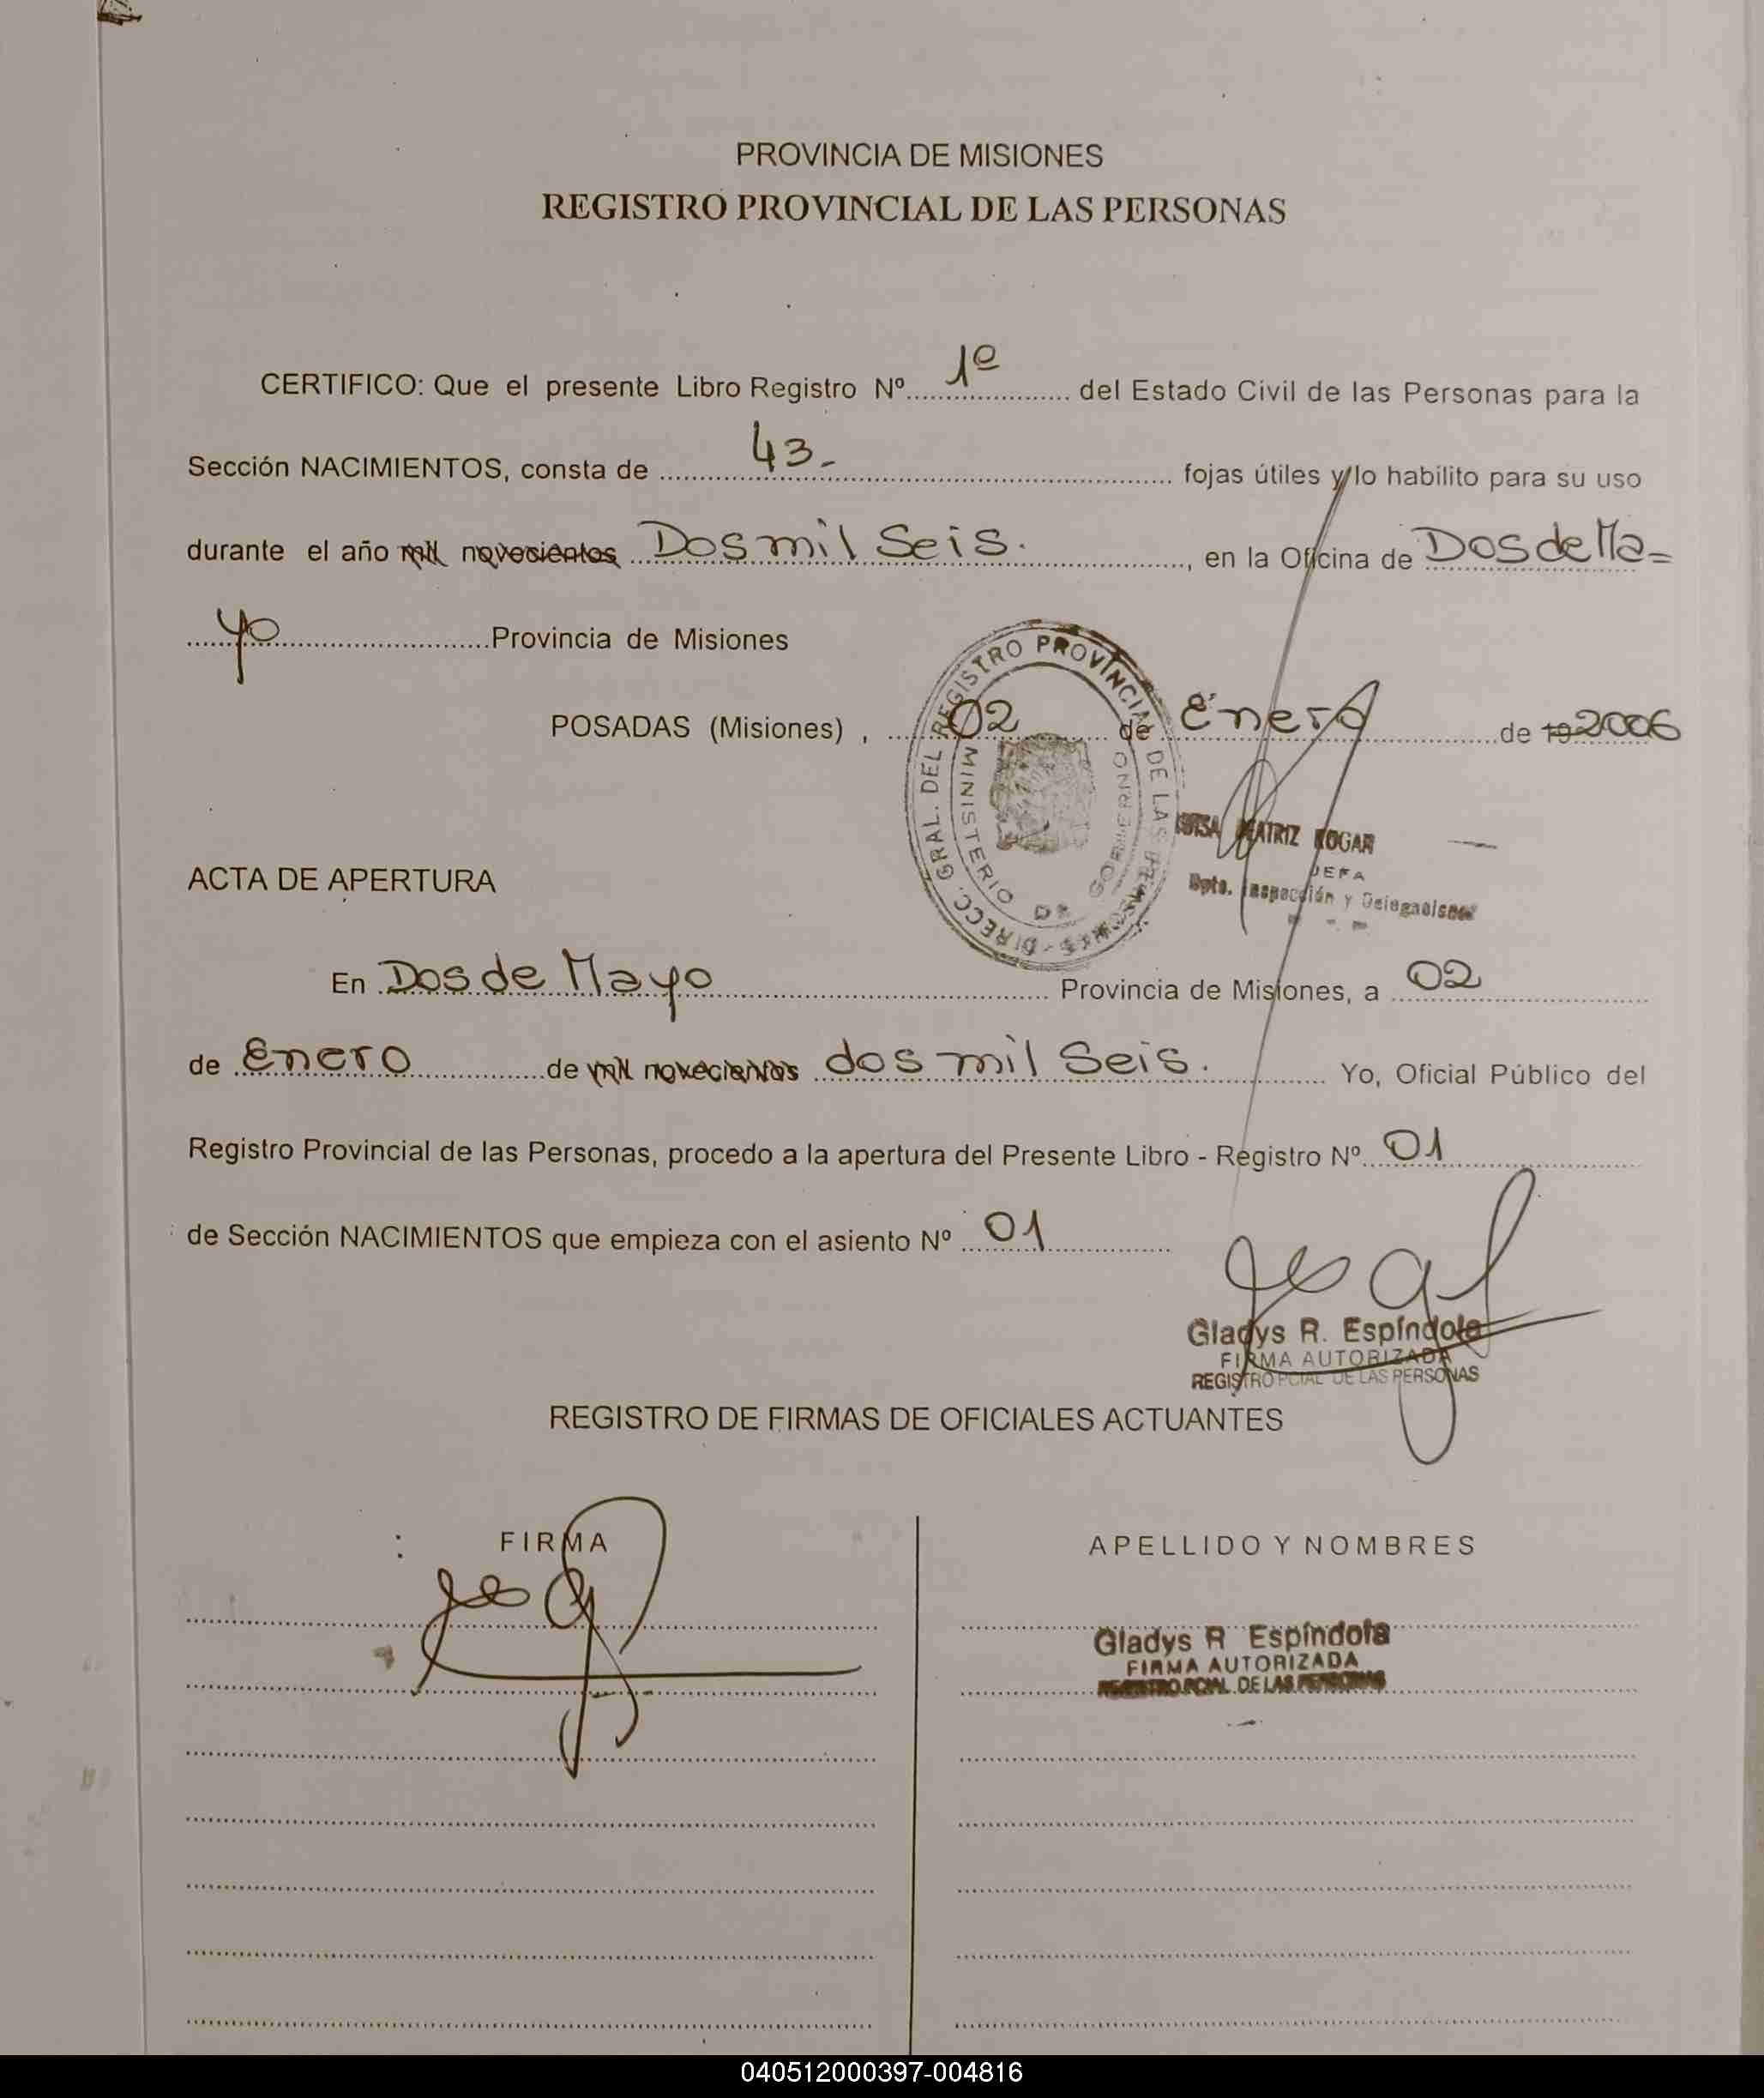 PROVINCIA DE MISIONES
REGISTRO PROVINCIAL DE LAS PERSONAS
CERTIFICO: Que el presente Libro Registro Nº 1º del Estado Civil de las Personas para la
Sección NACIMIENTOS, consta de 43- fojas útiles y lo habilito para su uso
durante el año mil novecientos Dos mil Seis. , en la Oficina de Dos de Ma=
yo Provincia de Misiones
POSADAS (Misiones) , 02 de Enero de 19 2006
DIRECC. GRAL. DEL REGISTRO PROVINCIAL DE LAS PERSONAS
MINISTERIO DE GOBIERNO
BEATRIZ ROGAR
JEFA
Dpto. Inspección y Delegaciones
ACTA DE APERTURA
En Dos de Mayo Provincia de Misiones, a 02
de Enero de mil novecientos dos mil Seis. Yo, Oficial Público del
Registro Provincial de las Personas, procedo a la apertura del Presente Libro - Registro Nº 01
de Sección NACIMIENTOS que empieza con el asiento Nº 01
Gladys R. Espíndola
FIRMA AUTORIZADA
REGISTRO PCIAL DE LAS PERSONAS
REGISTRO DE FIRMAS DE OFICIALES ACTUANTES
FIRMA APELLIDO Y NOMBRES
Gladys R Espíndola
FIRMA AUTORIZADA
REGISTRO PCIAL DE LAS PERSONAS
040512000397-004816